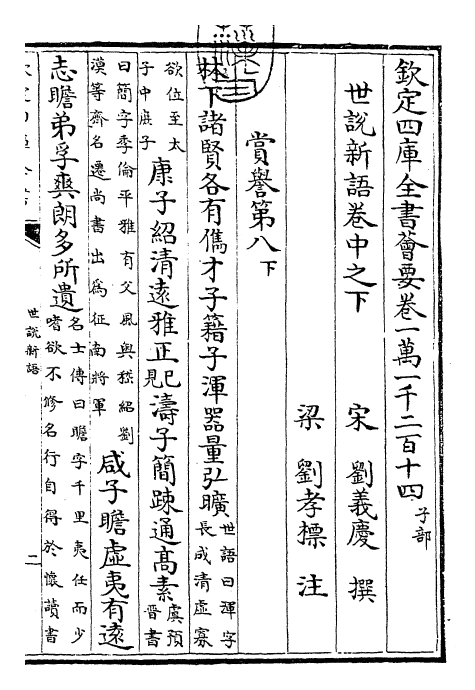 欽定四庫全書薈要卷一萬一千二百十四 子部
世說新語卷中之下 宋 劉義慶 撰
梁 劉孝標 注
賞譽第八下
林下諸賢各有儁才子籍子渾器量弘曠 世語曰渾字長成清虛寡
欲位至太子中庶子 康子紹清遠雅正 已見 濤子簡踈通高素 虞預晉書
曰簡字季倫平雅有父風與嵇紹劉漠等齊名遷尚書出為征南將軍 咸子瞻虛夷有遠
志瞻弟孚爽朗多所遺 名士傳曰瞻字千里夷任而少嗜欲不修名行自得於懷讀書
世說新語 二